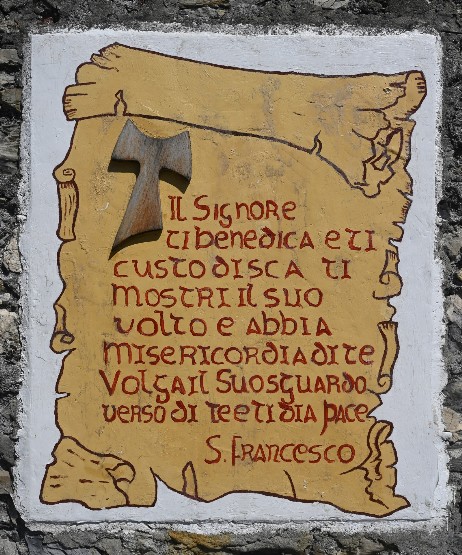 Il Signore
ti benedica e ti
custodisca ti
mostri il suo
volto e abbia
misericordia di te
Volga il Suo sguardo
verso di te e ti dia pace
S. Francesco